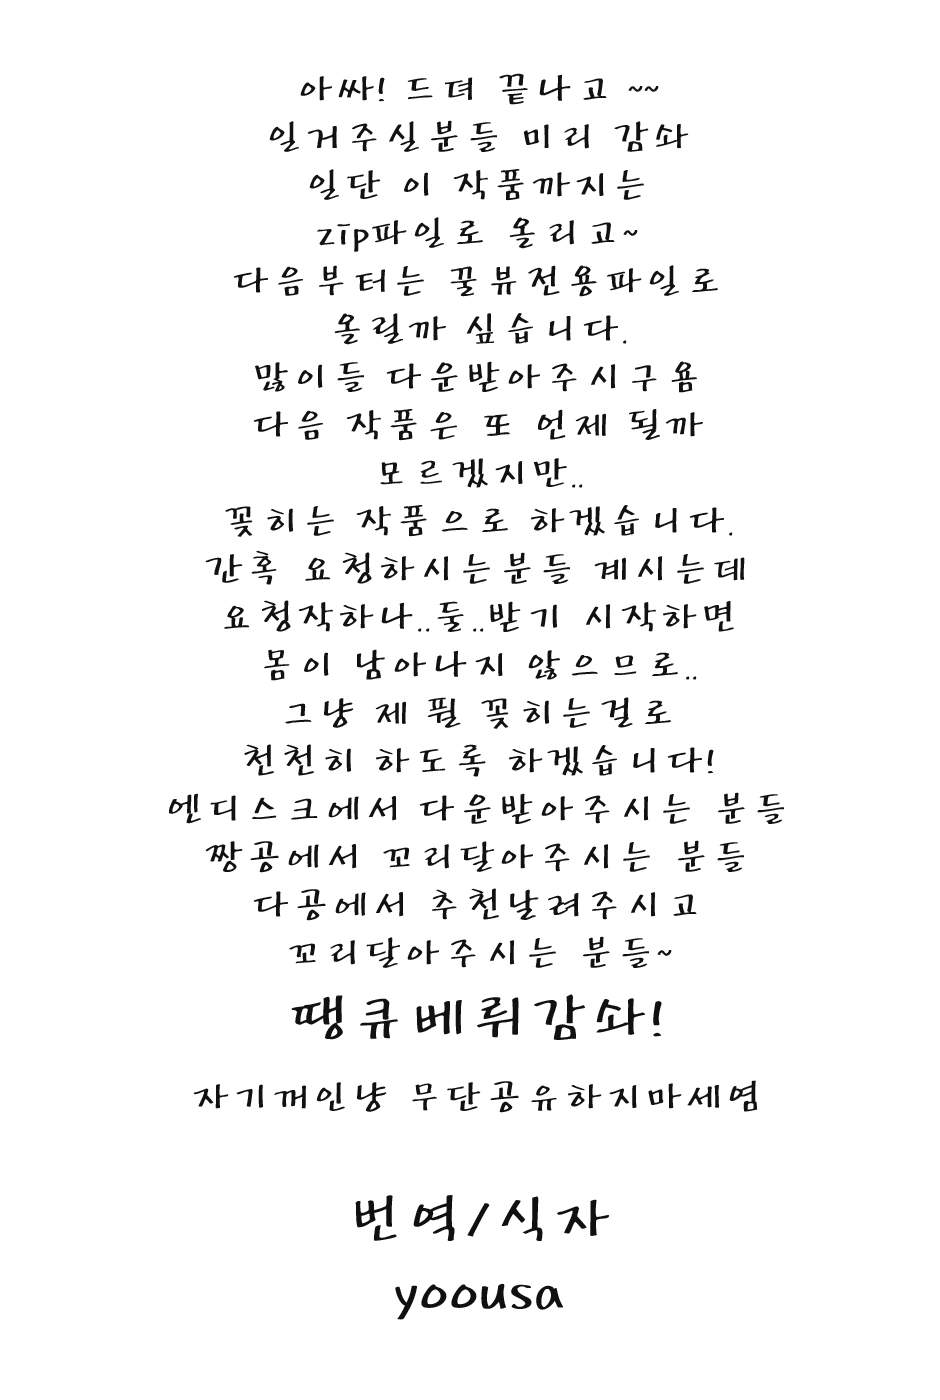 아싸! 드뎌 끝나고 ~~
일거주실분들 미리 감솨
일단 이 작품까지는
zip파일로 올리고~
다음부터는 꿀뷰전용파일로
올릴까 싶습니다.
많이들 다운받아주시구욤
다음 작품은 또 언제 될까
모르겠지만..
꽂히는 작품으로 하겠습니다.
간혹 요청하시는분들 계시는데
요청작하나..둘..받기 시작하면
몸이 남아나지 않으므로..
그냥 제 퓔 꽂히는걸로
천천히 하도록 하겠습니다!
엔디스크에서 다운받아주시는 분들
짱공에서 꼬리달아주시는 분들
다공에서 추천날려주시고
꼬리달아주시는 분들~
땡큐베뤼감솨!
자기꺼인냥 무단공유하지마세염
번역/식자
yoousa